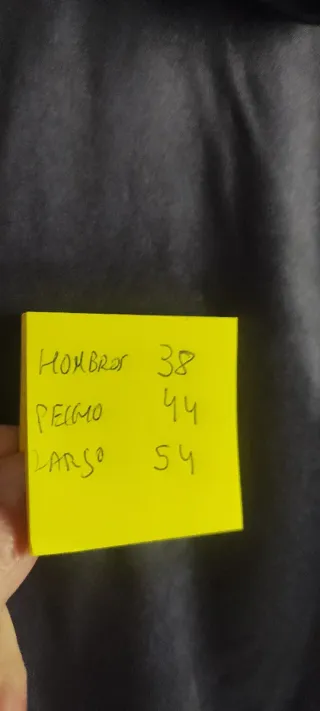 HOMBROS 38
PECHO 44
LARGO 54